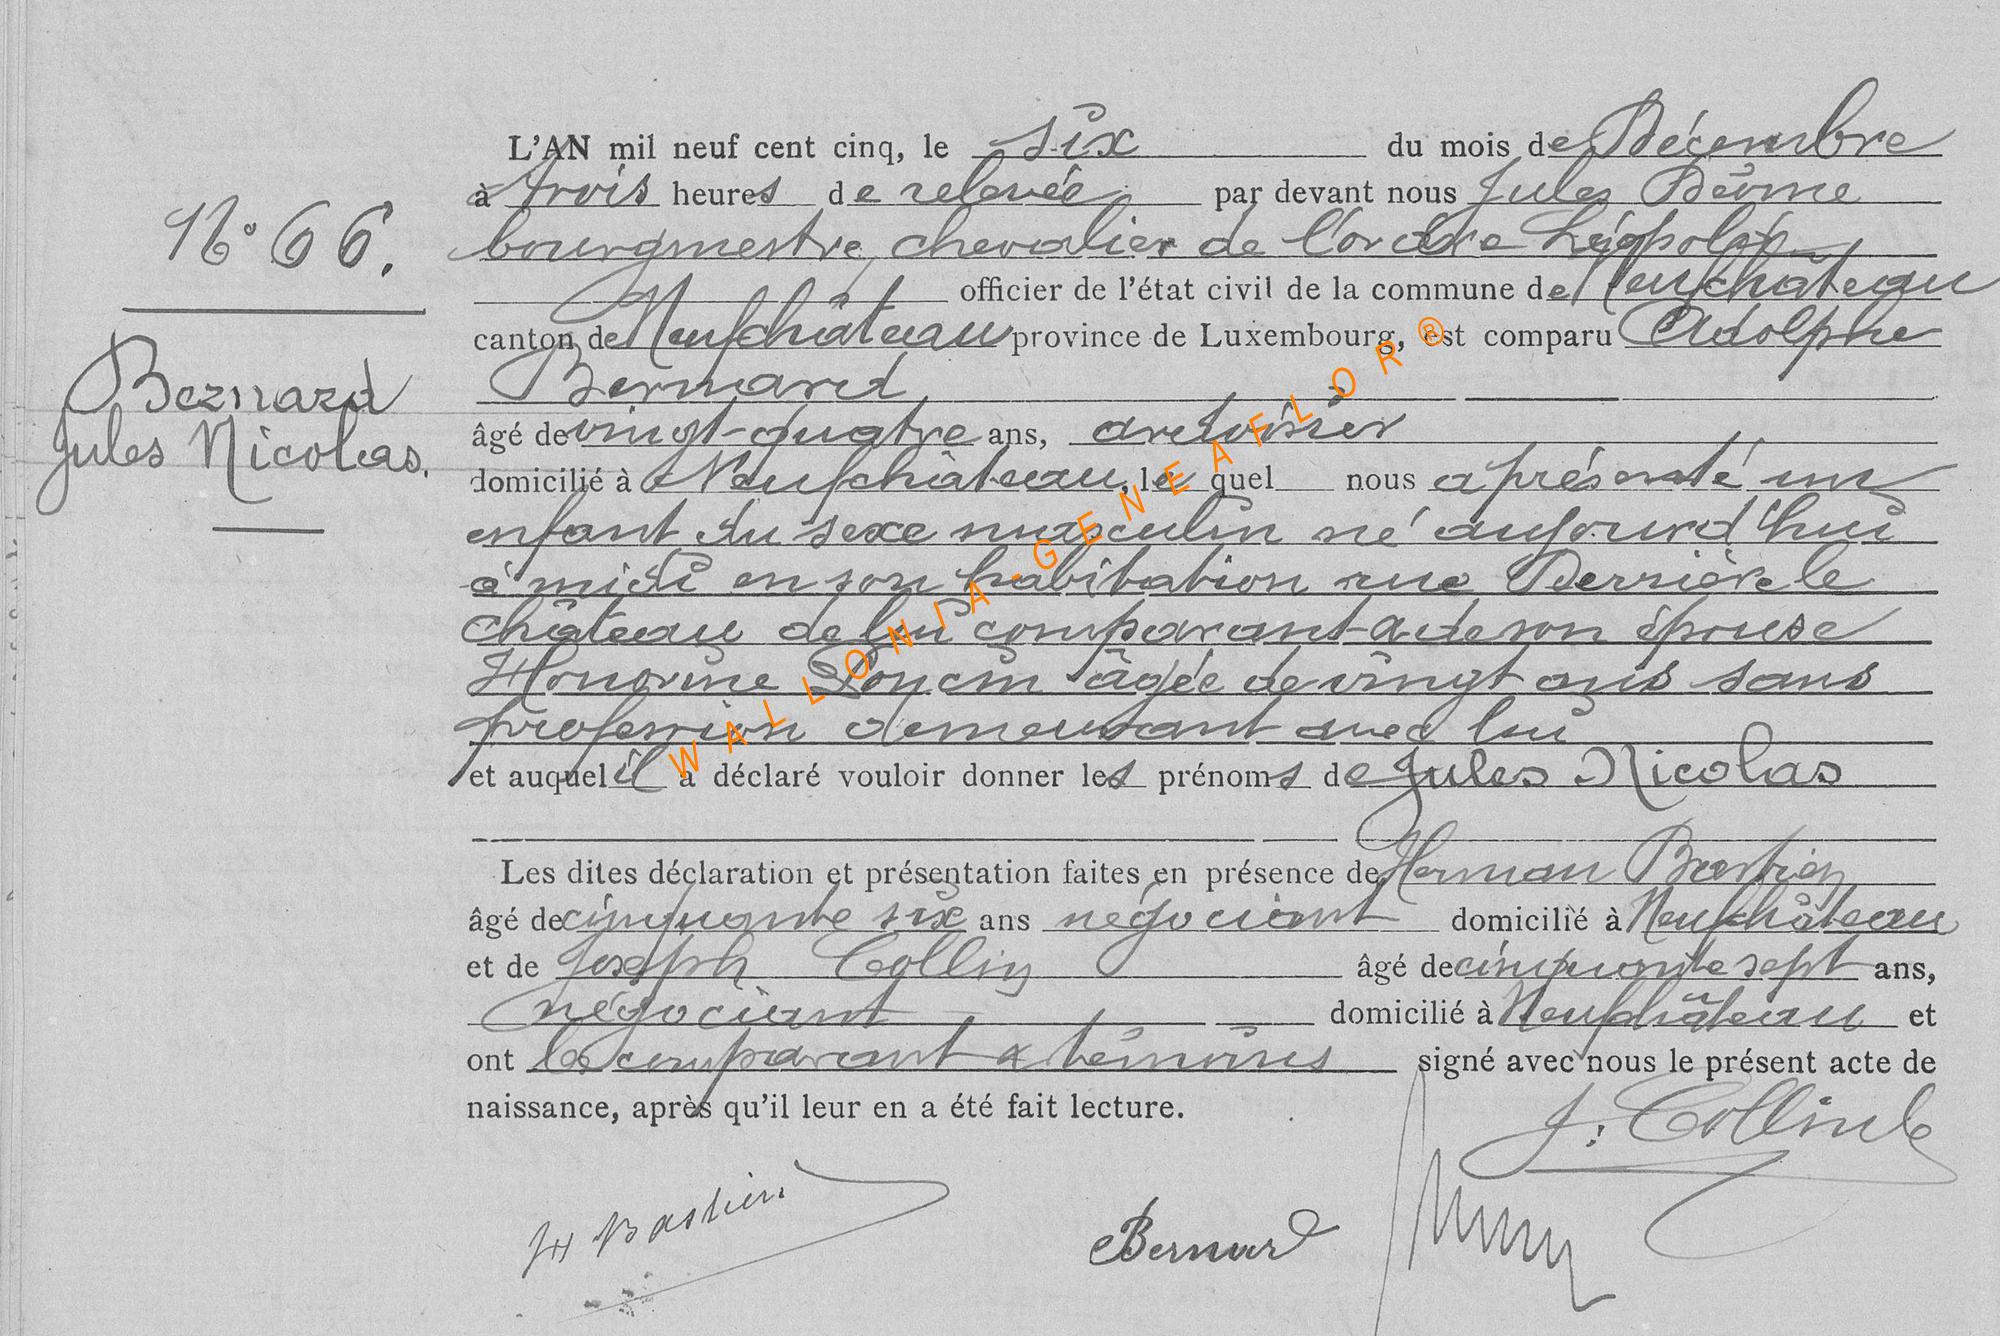 L'AN mil neuf cent cinq, le six du mois de Décembre
à trois heures de relevée par devant nous Jules
bourgmestre, chevalier de l'ordre Léopold
officier de l'état civil de la commune de Neufchâteau
canton de Neufchâteau province de Luxembourg, est comparu Adolphe
Bernard
âgé de vingt-quatre ans, ardoisier
domicilié à Neufchâteau, le quel nous a présenté un
enfant du sexe masculin né aujourd'hui
à midi en son habitation rue Derrière le
château de lui comparant & de son épouse
Honorine âgée de vingt ans sans
profession demeurant avec lui
et auquel il a déclaré vouloir donner les prénoms de Jules Nicolas
Les dites déclaration et présentation faites en présence de Herman Bastien
âgé de cinquante six ans négociant domicilié à Neufchâteau
et de Joseph Collin âgé de cinquante sept ans,
négociant domicilié à Neufchâteau et
ont le comparant & témoins signé avec nous le présent acte de
naissance, après qu'il leur en a été fait lecture.
N° 66.
Bernard
Jules Nicolas.
J. Collin
H Bastien
Bernard
WALLONIA-GENEAFLOR®